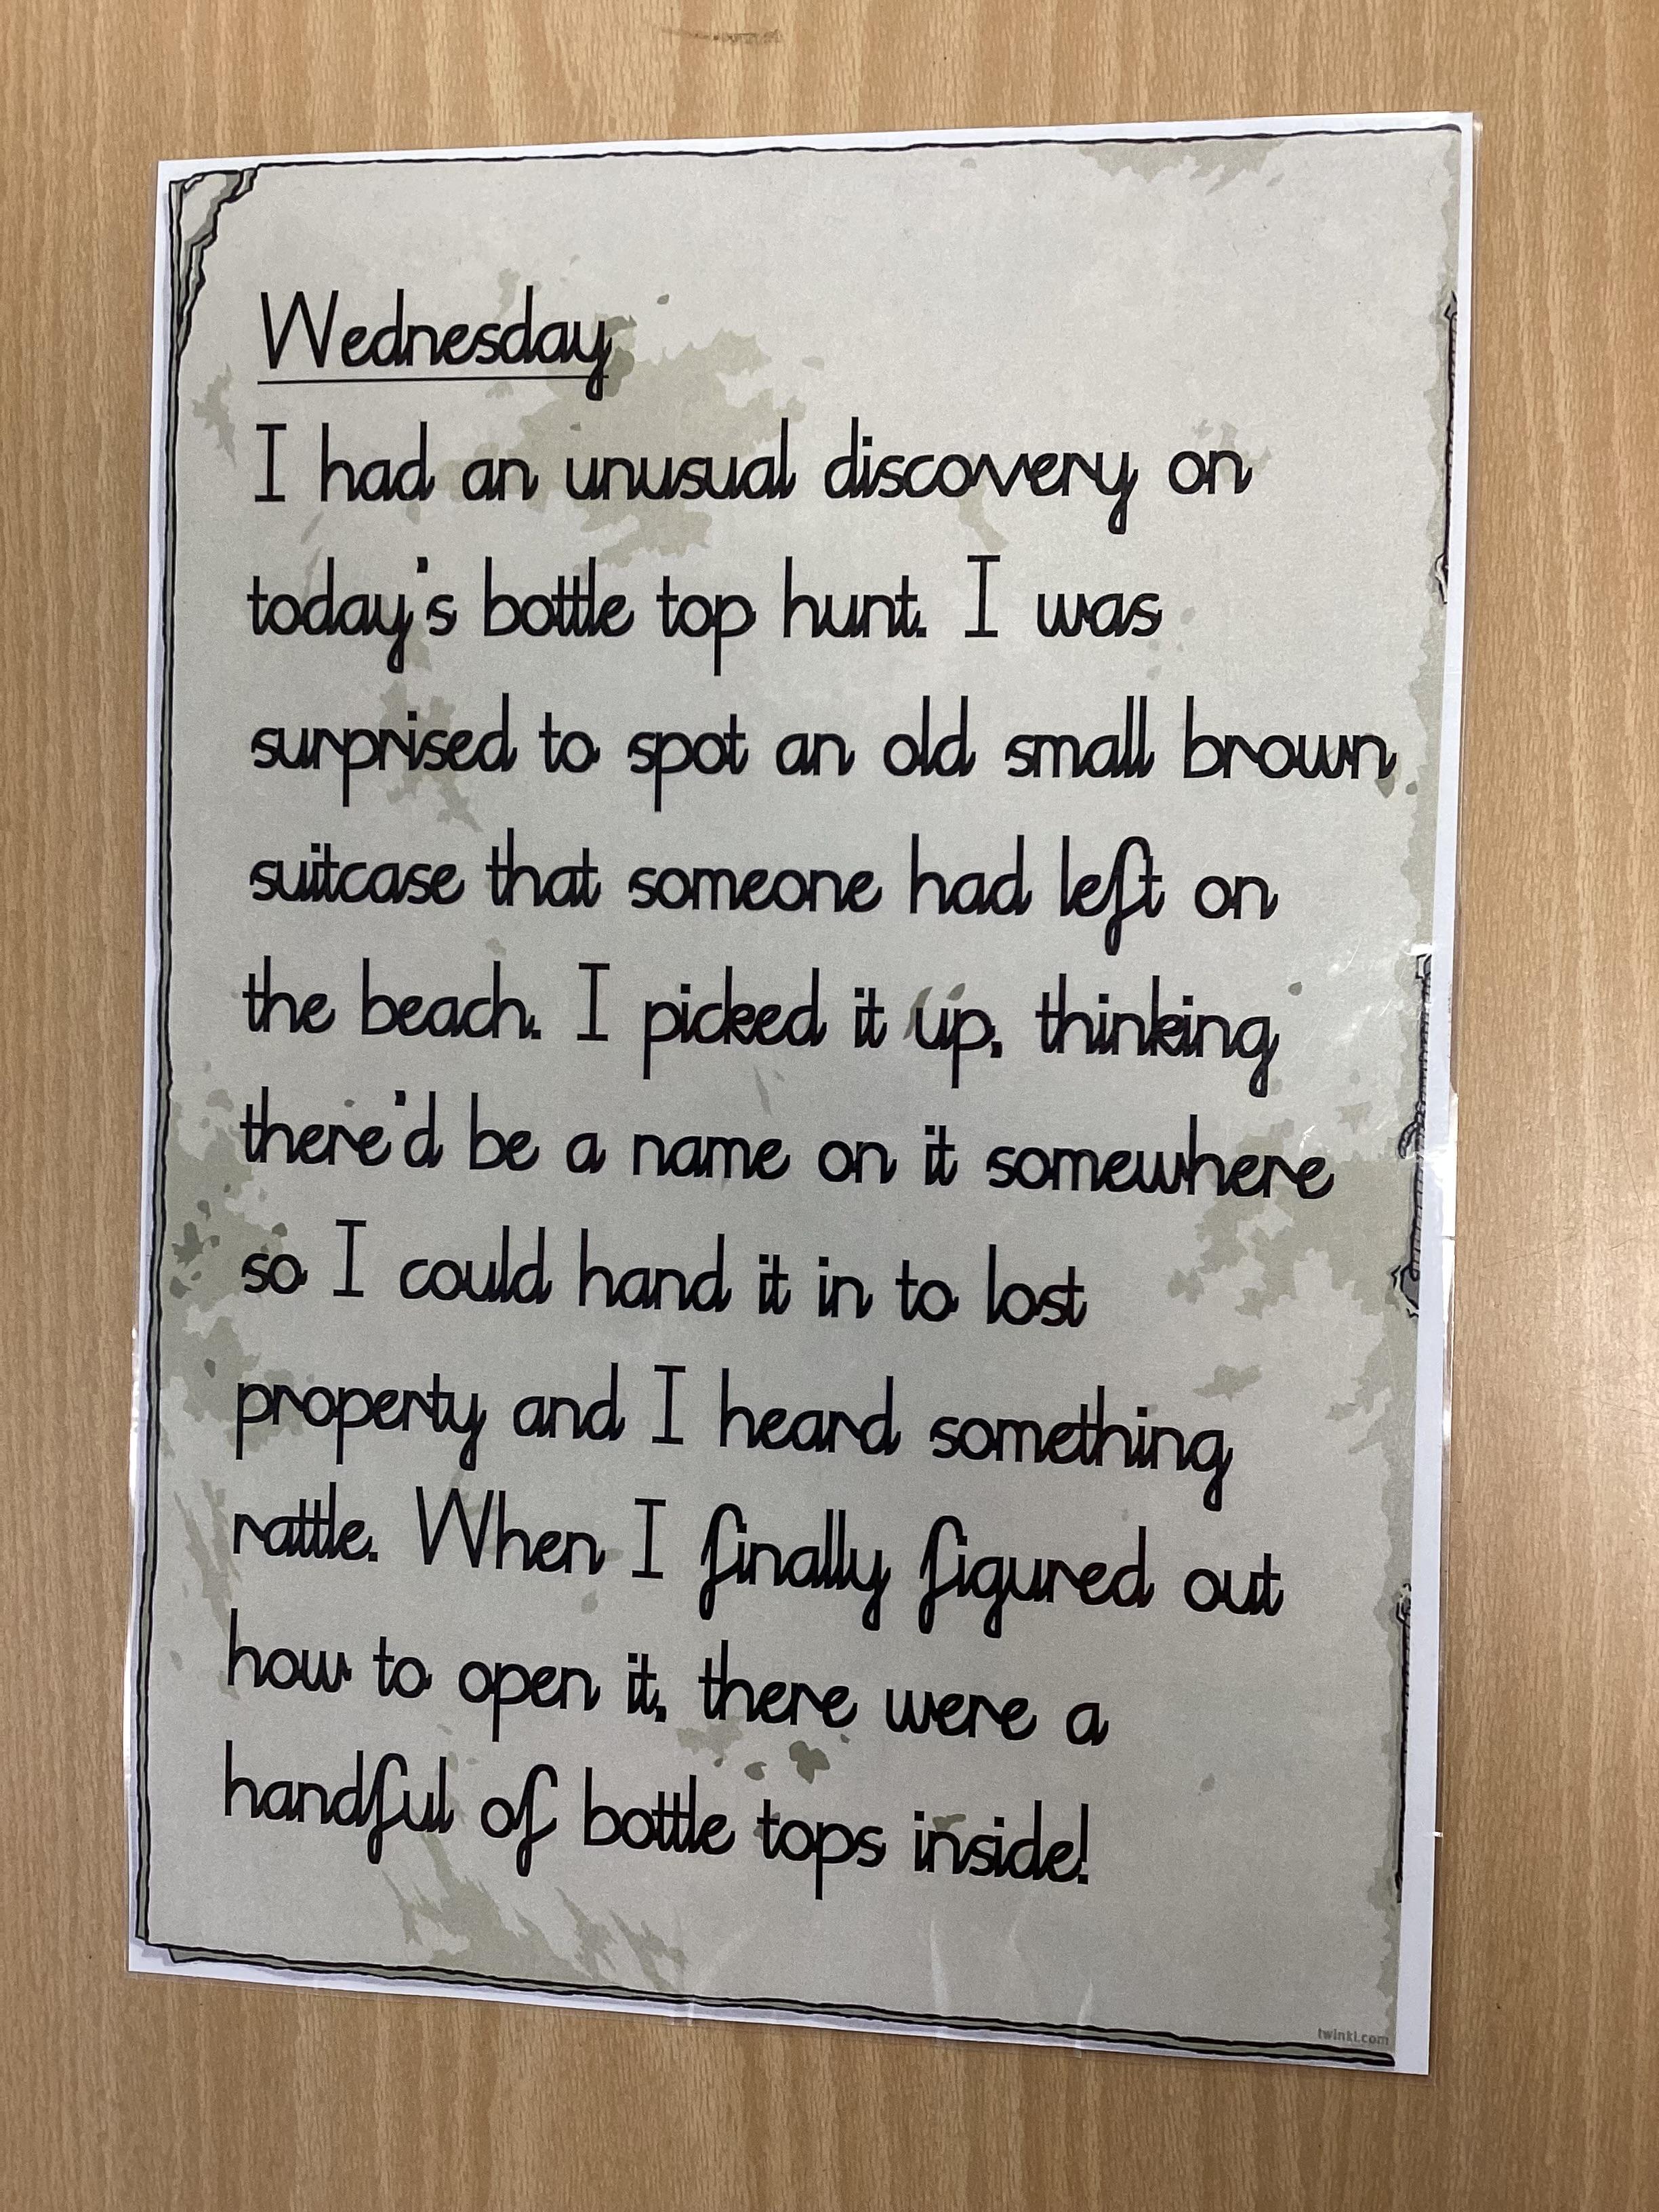 Wednesday
I had an unusual discovery on
today's bottle top hunt. I was
surprised to spot an old small brown
suitcase that someone had left on
the beach. I picked it up, thinking
there'd be a name on it somewhere
so I could hand it in to lost
property and I heard something
rattle. When I finally figured out
how to open it, there were a
handful of bottle tops inside!
twinkl.com